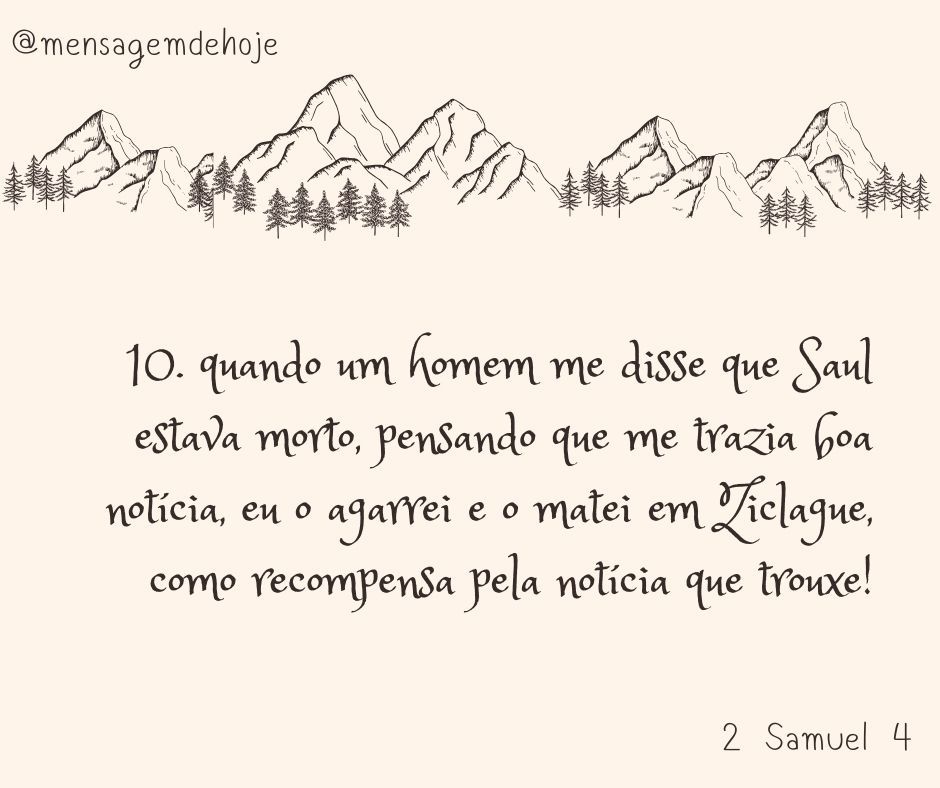 @mensagemdehoje
10. quando um homem me disse que Saul
estava morto, pensando que me trazia boa
notícia, eu o agarrei e o matei em Ziclague,
como recompensa pela notícia que trouxe!
2 Samuel 4